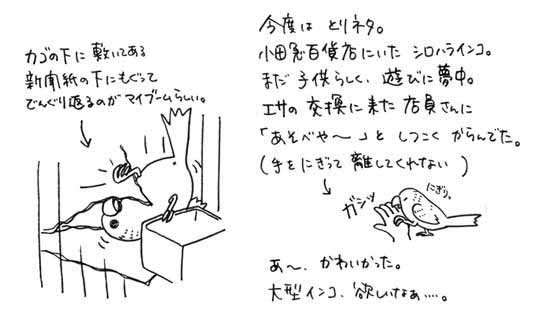 カゴの下に敷いてある
新聞紙の下にもぐって
でんぐり返るのがマイブームらしい。
今度は とりネタ。
小田急百貨店にいた シロハラインコ。
まだ 子供らしく、遊びに夢中。
エサの 交換に来た 店員さんに
「あそべや〜」と しつこく からんでた。
(手をにぎって 離してくれない)
ガシッ
にぎり。
あ〜、かわいかった。
大型インコ、欲しいなぁ…。